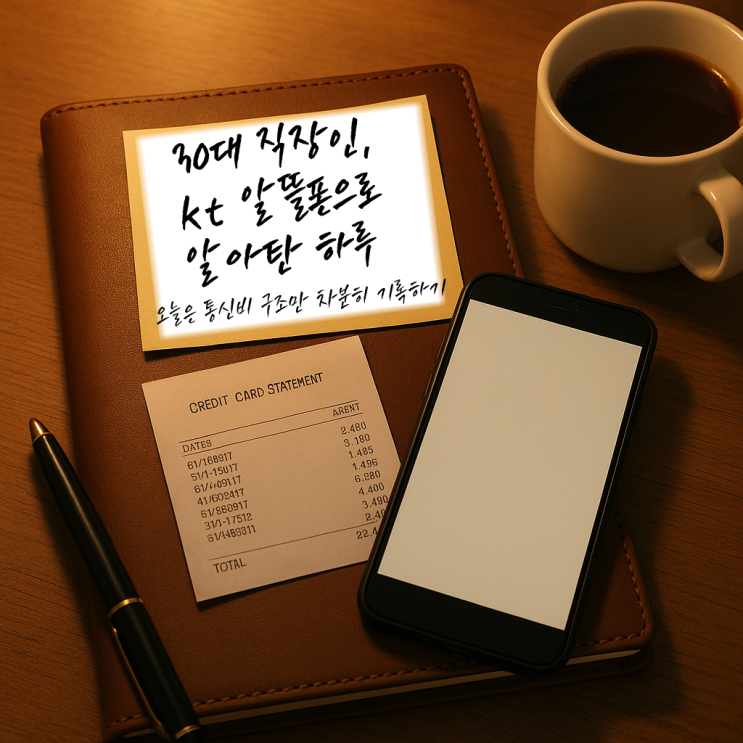 30대 직장인,
kt 알뜰폰으로
알아탄 하루
오늘은 통신비 구조만 차분히 기록하기
CREDIT CARD STATEMENT
ARENT
DATES
2.480
61/168917
3.180
51/1-15017
1.485
1.496
41/602417
6.280
61/860917
4.400
31/1-17512
3.490
TOTAL